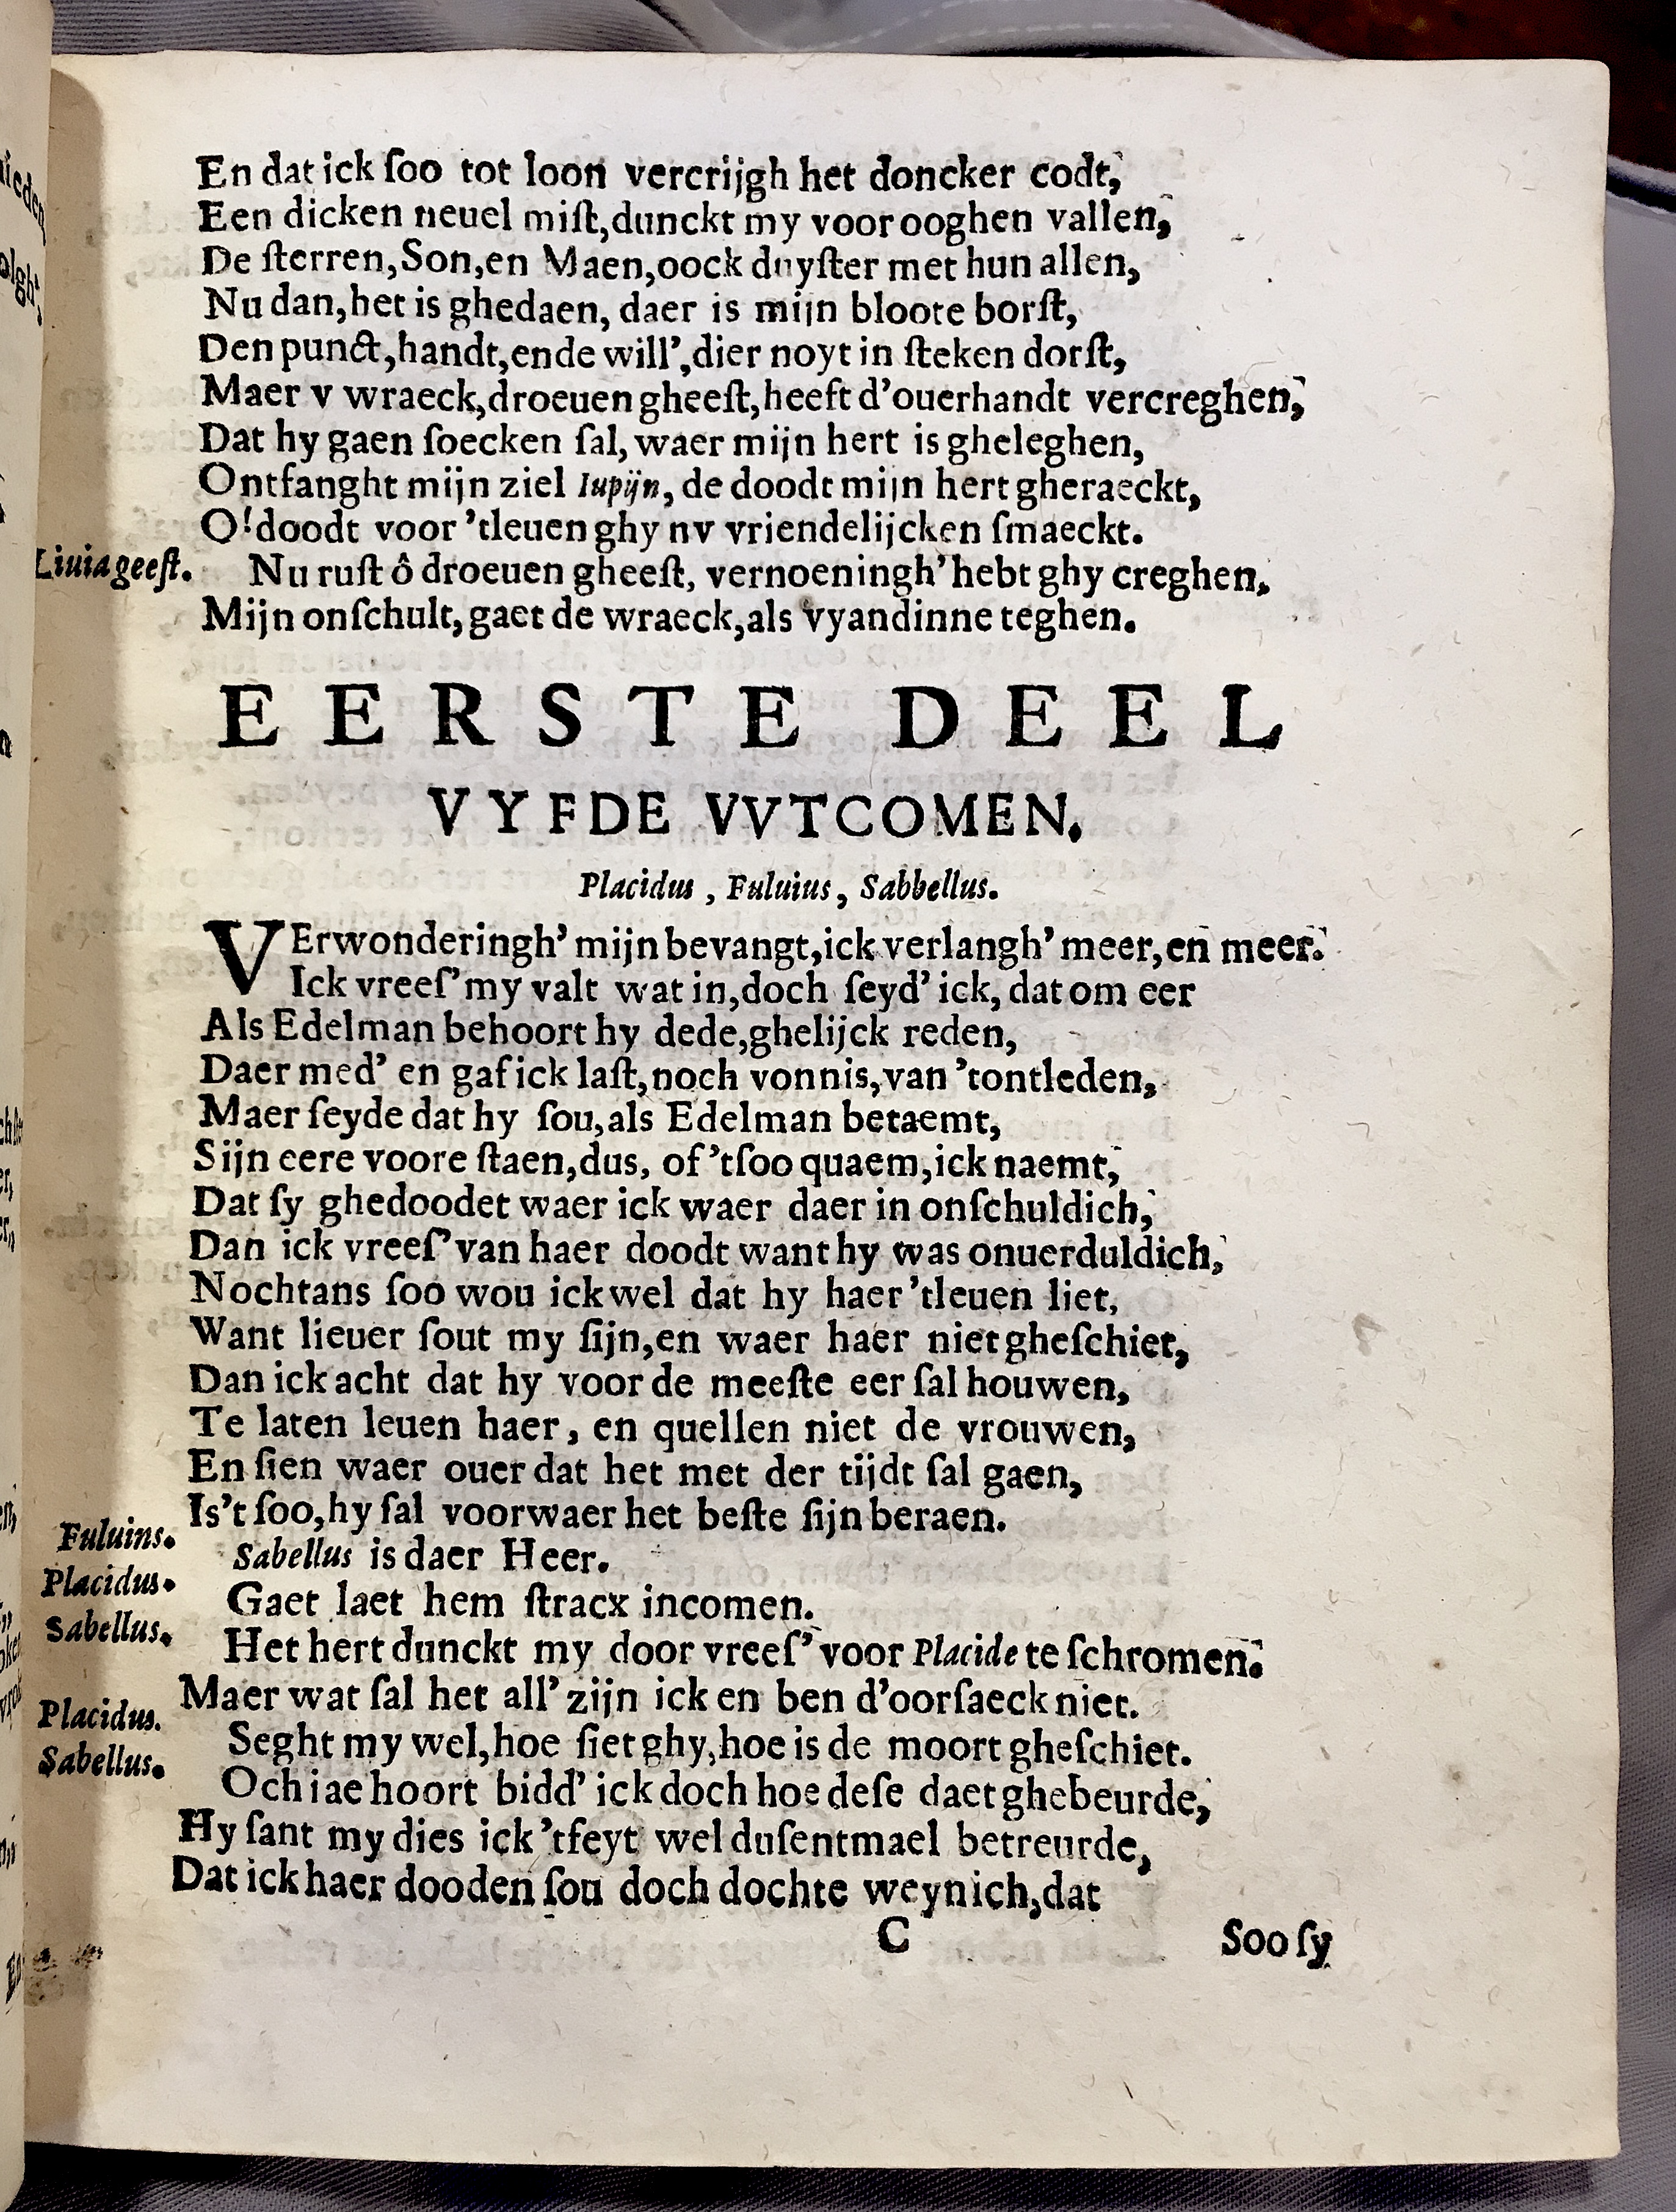 En dat ick ſoo tot loon vercrijgh het doncker codt,
Een dicken neuel miſt, dunckt my voor ooghen vallen,
De ſterren, Son, en Maen, oock duyſter met hun allen,
Nu dan, het is ghedaen, daer is mijn bloote borſt,
Den punct, handt, ende will', dier noyt in ſteken dorſt,
Maer v wraeck, droeuen gheeſt, heeft d'ouerhandt vercreghen,
Dat hy gaen ſoecken ſal, waer mijn hert is gheleghen,
Ontfanght mijn ziel Iupijn, de doodt mijn hert gheraeckt,
O! doodt voor 'tleuen ghy nv vriendelijcken ſmaeckt.
Liuia geeſt. Nu ruſt ô droeuen gheeſt, vernoeningh' hebt ghy creghen,
Mijn onſchult, gaet de wraeck, als vyandinne teghen.
EERSTE DEEL
VYFDE VVTCOMEN.
Placidus, Fuluius, Sabbellus.
VErwonderingh' mijn bevangt, ick verlangh' meer, en meer.
Ick vreeſ' my valt wat in, doch ſeyd' ick, dat om eer
Als Edelman behoort hy dede, ghelijck reden,
Daer med' en gaf ick laſt, noch vonnis, van 'tontleden,
Maer ſeyde dat hy ſou, als Edelman betaemt,
Sijn eere voore ſtaen, dus, of 'tſoo quaem, ick naemt,
Dat ſy ghedoodet waer ick waer daer in onſchuldich,
Dan ick vreeſ' van haer doodt want hy was onuerduldich,
Nochtans ſoo wou ick wel dat hy haer 'tleuen liet,
Want lieuer ſout my ſijn, en waer haer niet gheſchiet,
Dan ick acht dat hy voor de meeſte eer ſal houwen,
Te laten leuen haer, en quellen niet de vrouwen,
En ſien waer ouer dat het met der tijdt ſal gaen,
Is't ſoo, hy ſal voorwaer het beſte ſijn beraen.
Fuluins. Sabellus is daer Heer.
Placidus. Gaet laet hem ſtracx incomen.
Sabellus. Het hert dunckt my door vreeſ' voor Placide te ſchromen.
Maer wat ſal het all' zijn ick en ben d'oorſaeck niet.
Placidus. Seght my wel, hoe ſiet ghy, hoe is de moort gheſchiet.
Sabellus. Och iae hoort bidd' ick doch hoe deſe daet ghebeurde,
Hy ſant my dies ick 'tfeyt wel duſentmael betreurde,
Dat ick haer dooden ſou doch dochte weynich, dat
C Soo ſy